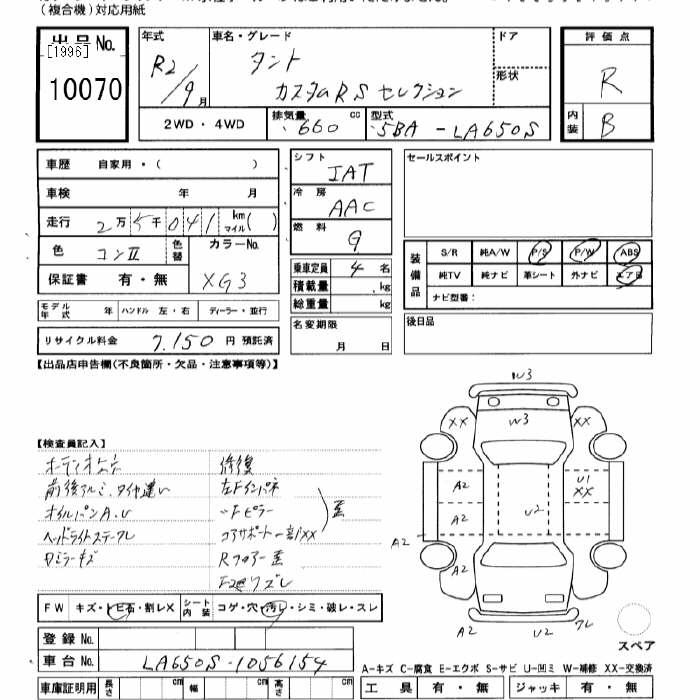 (複合機)対応用紙
出品No.
[1996]
10070
年式 R2/9月
車名・グレード タント カスタムRSセレクション
ドア
形状
2WD・4WD
排気量 660 cc
型式 5BA-LA650S
評価点 R
内装 B
車歴 自家用・( )
車検 年 月
走行 2万5千041 km マイル( )
色 コンⅡ 色替 カラーNo. XG3
保証書 有・無
モデル年式 年 ハンドル 左・右 ディーラー・並行
リサイクル料金 7,150 円 預託済
シフト IAT
冷房 AAC
燃料 G
乗車定員 4 名
積載量 kg
総重量 kg
名変期限 月 日
セールスポイント
装備品 S/R 純A/W P/S P/W ABS
純TV 純ナビ 革シート 外ナビ エアB
ナビ型番:
後日品
【出品店申告欄(不良箇所・欠品・注意事項等)】
【検査員記入】
オーディオ欠
前後アルミ、タイヤ違い
オイルパンA、U
ヘッドライトステークレ
Dミラーキズ
修復
左Fインパネ
〃Fピラー
コアサポート一部XX
歪
Rフロアー歪
FW キズ・トビ石・割レX シート内装 コゲ・穴・汚レ・シミ・破レ・スレ
登録No.
車台No. LA650S-1056154
車庫証明用 長さ cm 幅 cm 高さ cm
W3
XX W3 XX
A2 U1 XX
A2 U2
A2 A2
A2 U2 ワレ
スペア
A-キズ C-腐食 E-エクボ S-サビ U-凹ミ W-補修 XX-交換済
工具 有・無 ジャッキ 有・無